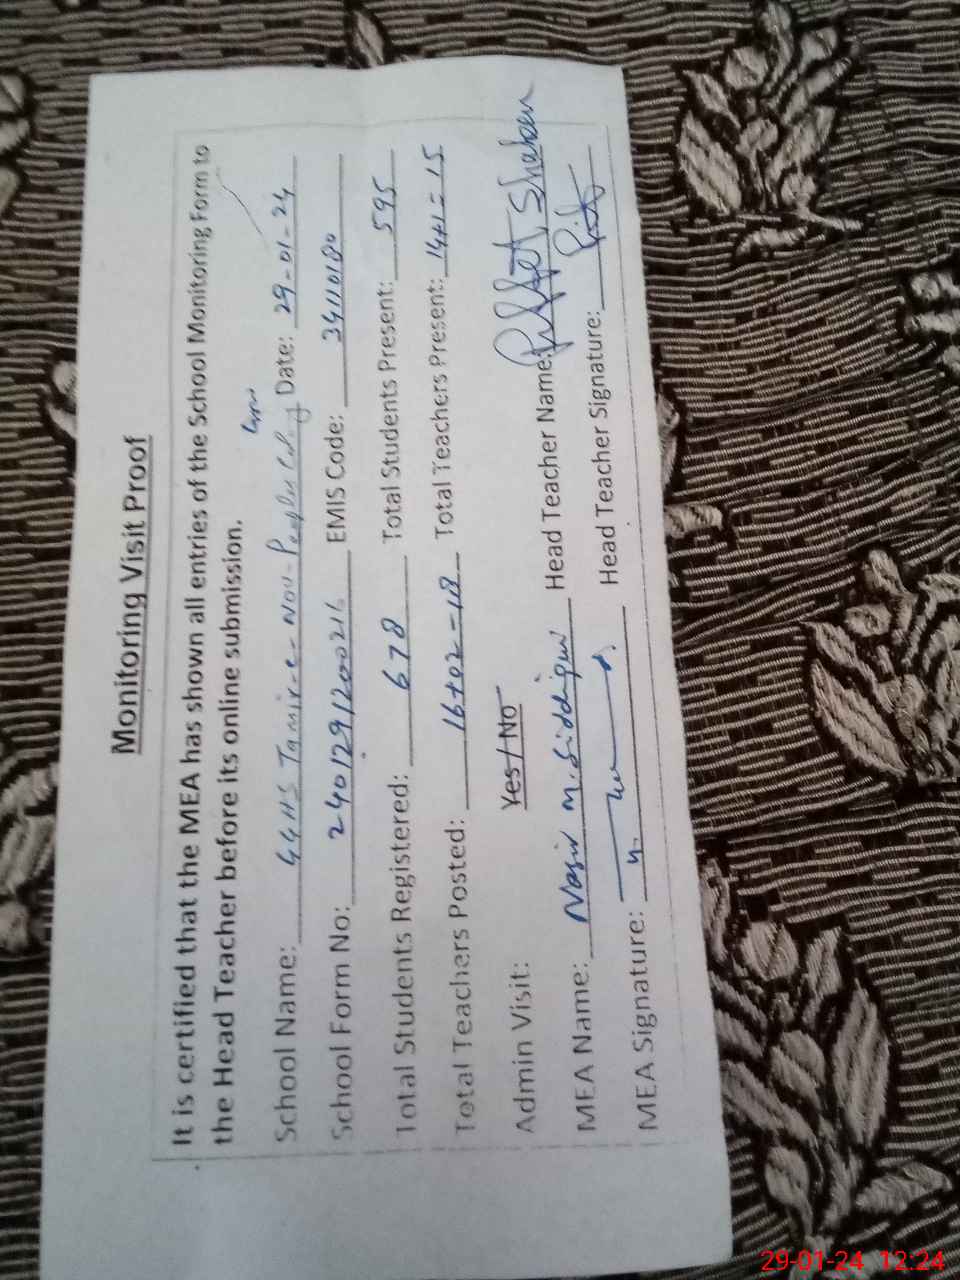 Monitoring Visit Proof
It is certified that the MEA has shown all entries of the School Monitoring Form to
the Head Teacher before its online submission.
School Name: GGHS Tamir-e-Nou-Peoples Colony Date: 29-01-24
School Form No: 2401291200216 EMIS Code: 34110180
Total Students Registered: 678 Total Students Present: 595
Total Teachers Posted: 16+02=18 Total Teachers Present: 14+1=15
Admin Visit: Yes/No
MEA Name: Nasir M. Siddique Head Teacher Name: Riffat Shaheen
MEA Signature: Head Teacher Signature:
29-01-24 12:24